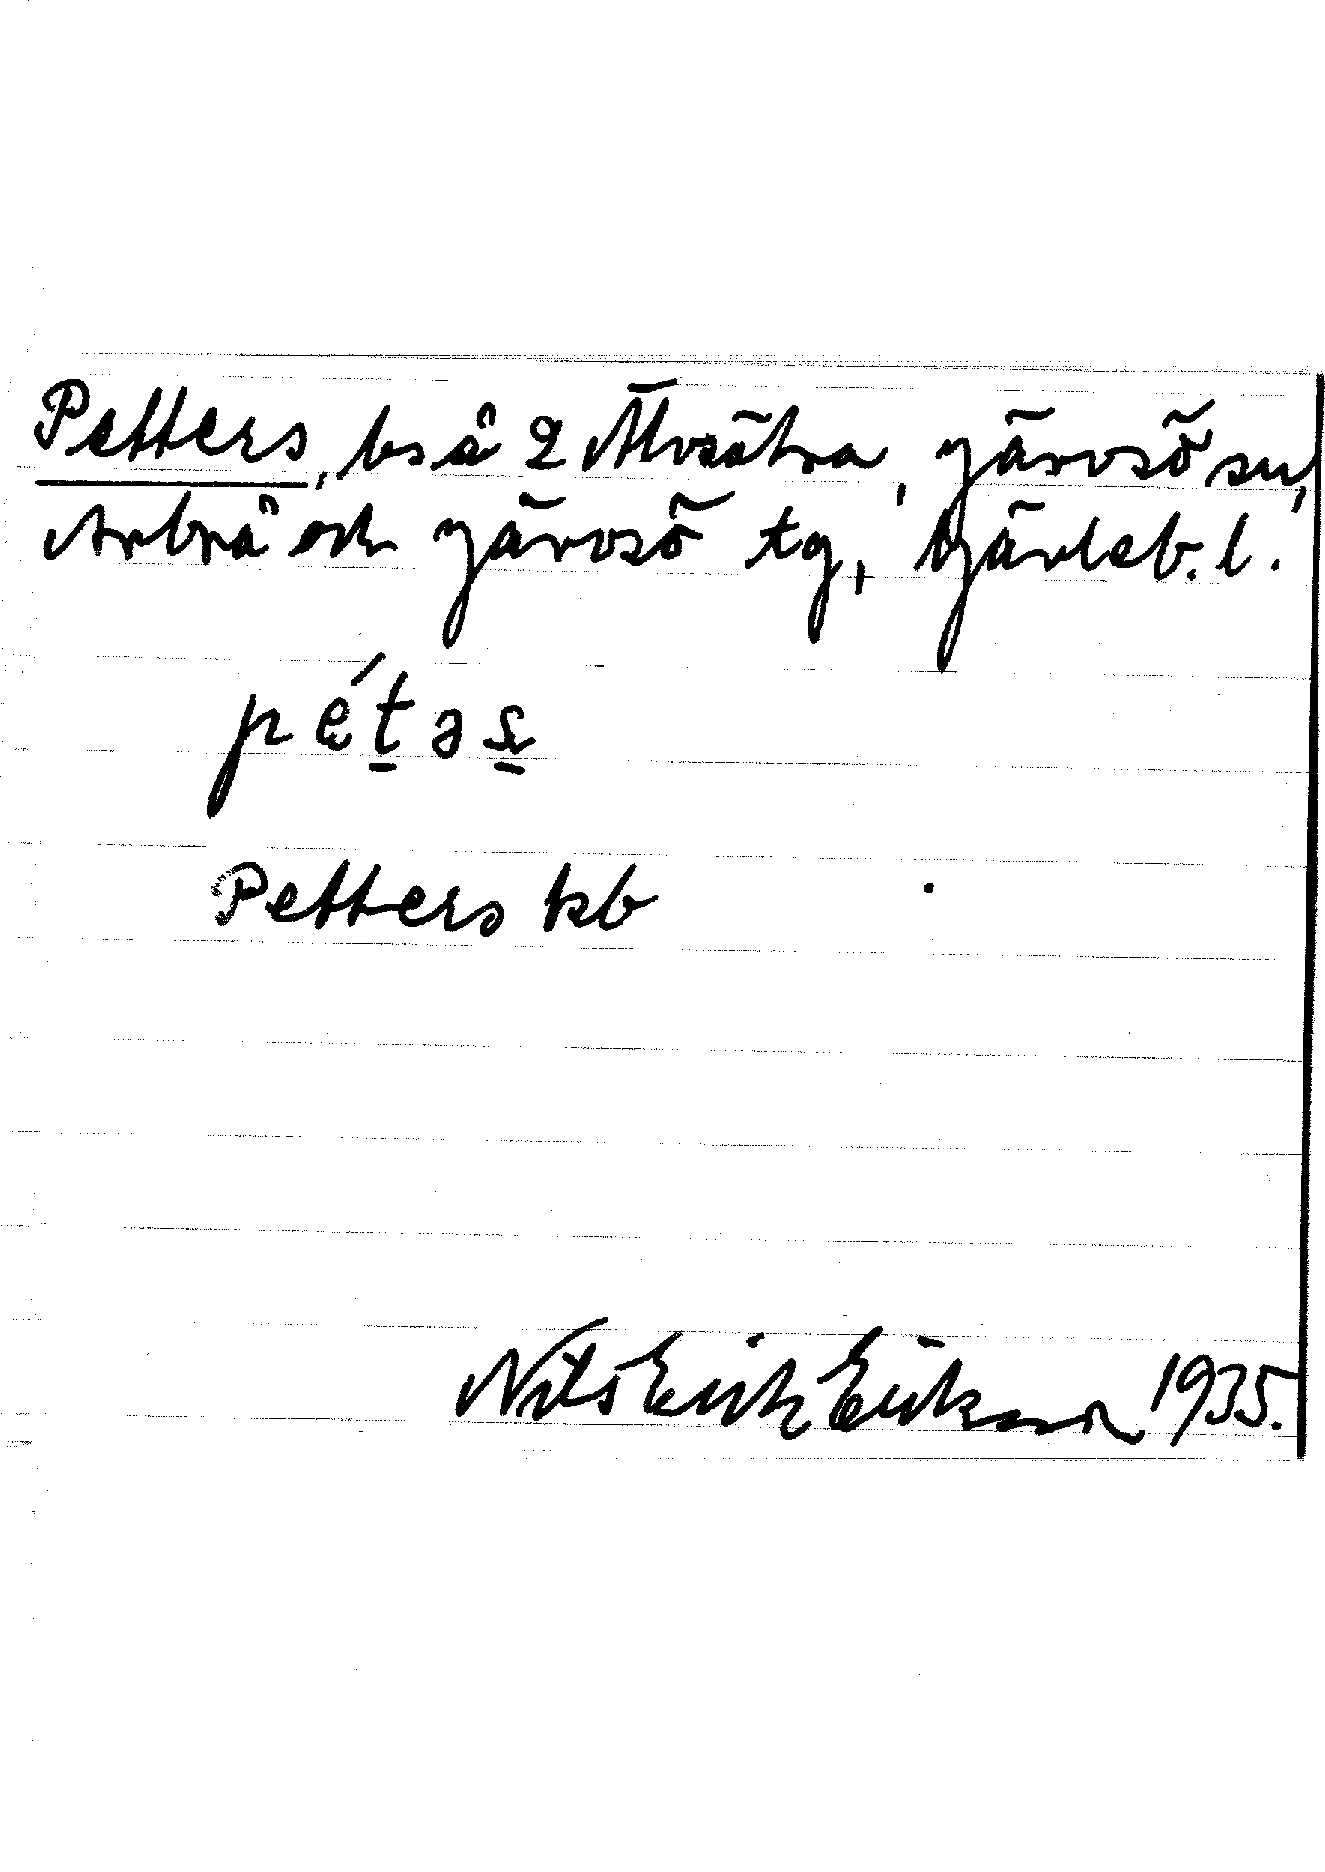 Petters, bs å 2 Älvsätra, Järvsö sn,
Arbrå och Järvsö tg, Gävleb. l.
pétəs
Petters kb
Nils Erik Eriksson 1935.